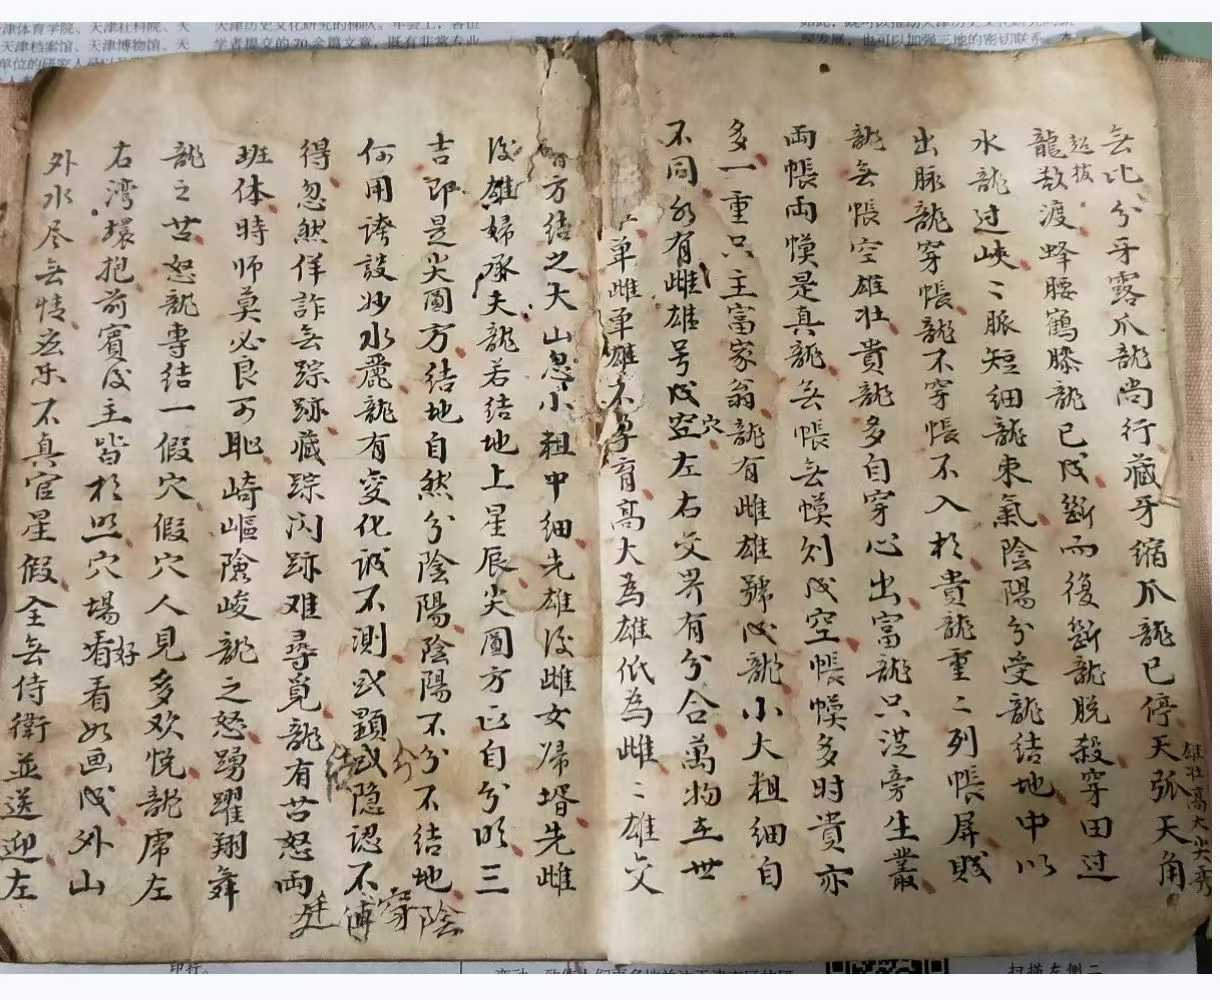 无比分牙露爪龍尚行藏牙缩爪龍已停天弧天角
雄壮高大尖秀
龍教渡蜂腰鶴膝龍已成断而復断龍脱殺穿田过
水龍过峽〻脈短细龍束氣陰陽分受龍结地中以
出脉龍穿帳龍不穿帳不入於貴龍重〻列帳屏贱
龍无帳空雄壮貴龍多自穿心出富龍只從旁生叢
両帳両幙是真龍无帳无幙则成空帳幙多时貴亦
多一重只主富家翁龍有雌雄號成龍小大粗细自
不同水有雌雄号成空左右交界有分合萬物在世
穴
单雌单雄不孕育高大為雄低為雌〻雄交
方结之大山忽小粗中细先雄後雌女㷌壻先雌
後雄婦承夫龍若结地上星辰尖圆方正自分明三
吉即是尖圆方结地自然分陰陽陰陽不分不结地陰
何用誇談妙水麗龍有变化诚不測或顕或隐認不
得忽然佯詐无踪跡藏踪闪跡难尋覓龍有苦怒両
班体時师莫必良可耻崎嶇險峻龍之怒踴躍翔舞
龍之苦怒龍專结一假穴假穴人見多欢悦龍虎左
右湾環抱前賓後主皆於照穴場看看如画成外山
好
外水尽无情玄乐不真官星假全无侍衛並送迎左